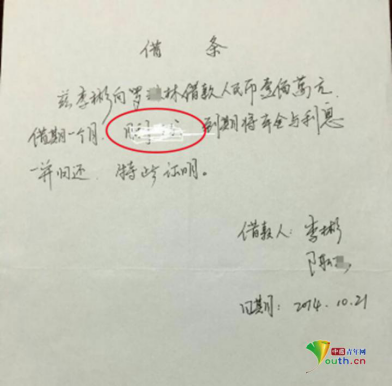 借 条
兹李彬向罗 林借款人民币壹佰萬元,
借期一个月, 到期将本金与利息
一并归还. 特此证明.
借款人: 李彬
陈
日期: 2014.10.21
中国青年网
youth.cn